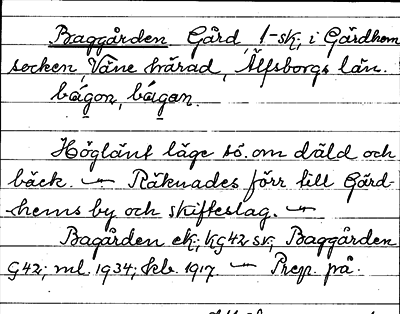 Baggården Gård, 1-sk, i Gärdhem
socken, Väne härad, Älfsborgs län.
bágon, bágan.
Höglänt läge sö. om däld och
bäck. — Räknades förr till Gärd-
hems by och skifteslag. —
Bagården ek; KG42 sv; Baggården
G42; ml. 1934; kb. 1917. — Prep. på.